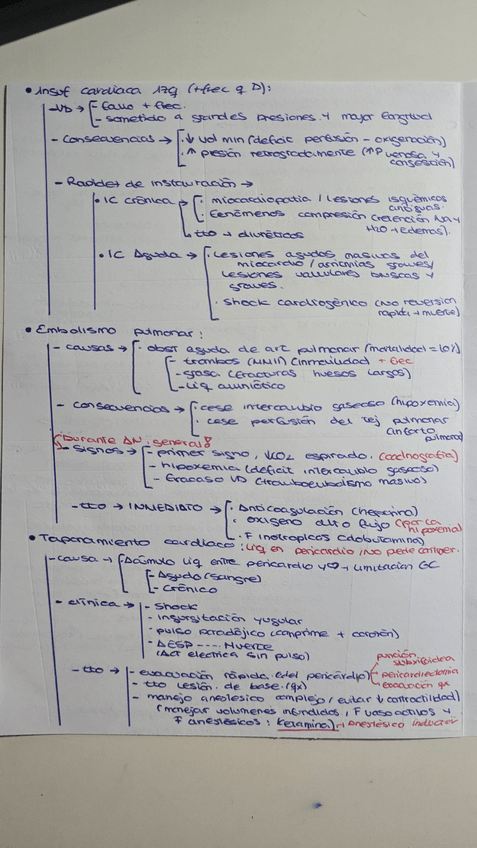 • Insuf cardiaca izq (+frec q D):
- VD → - Fallo + frec.
- sometido a grandes presiones y mayor longitud
- Consecuencias → · ↓ vol min (deficit perfusión - oxigenación)
· ↑ presión retrogradamente (↑P venosa y congestión)
- Rapidez de instauración →
• IC crónica → · miocardiopatía / Lesiones isquémicas antiguas.
· Fenómenos compresión (retención Na y H2O → Edemas).
tto → diuréticos
• IC Aguda → · Lesiones agudas masivas del
miocardio / arritmias graves /
Lesiones valvulares bruscas y
graves.
· Shock cardiogénico (No reversion
rapida → muerte)
• Embolismo pulmonar:
- causas → · obst aguda de art pulmonar (mortalidad = 10%)
- trombos (MMII) (inmovilidad + frec
- grasa (fracturas huesos largos)
- Liq amniótico
- Consecuencias → · cese intercambio gaseoso (hipoxemia)
· cese perfusión del tej pulmonar
(infarto pulmonar)
Durante AN. general!
- Signos → - primer signo, ↓CO2 espirado. (capnografía)
- hipoxemia (deficit intercambio gaseoso)
- Fracaso VD (tromboembolismo masivo)
- tto → INMEDIATO → · Anticoagulación (heparina)
· oxígeno alto flujo (por la hipoxemia)
· F inotropicos (dobutamina)
• Taponamiento cardiaco: Liq en pericardio / No puede romper.
- causa → · Acúmulo Liq entre pericardio y ♡ → Limitación GC
- Agudo (sangre)
- Crónico
- clínica → - Shock
- ingurgitación yugular
- pulso paradójico (comprime + corazón)
- AESP ---- MUERTE
(Act electrica sin pulso)
- tto → - evacuación rápida (del pericardio) - punción subxifoidea
- pericardiectomia
- evacuación qx
- tto Lesión de base. (qx)
- manejo anestesico complejo / evitar ↓ contractilidad)
(manejar volumenes infundidos, F vasoactivos y
F anestésicos: Ketamina) → Anestésico inductor